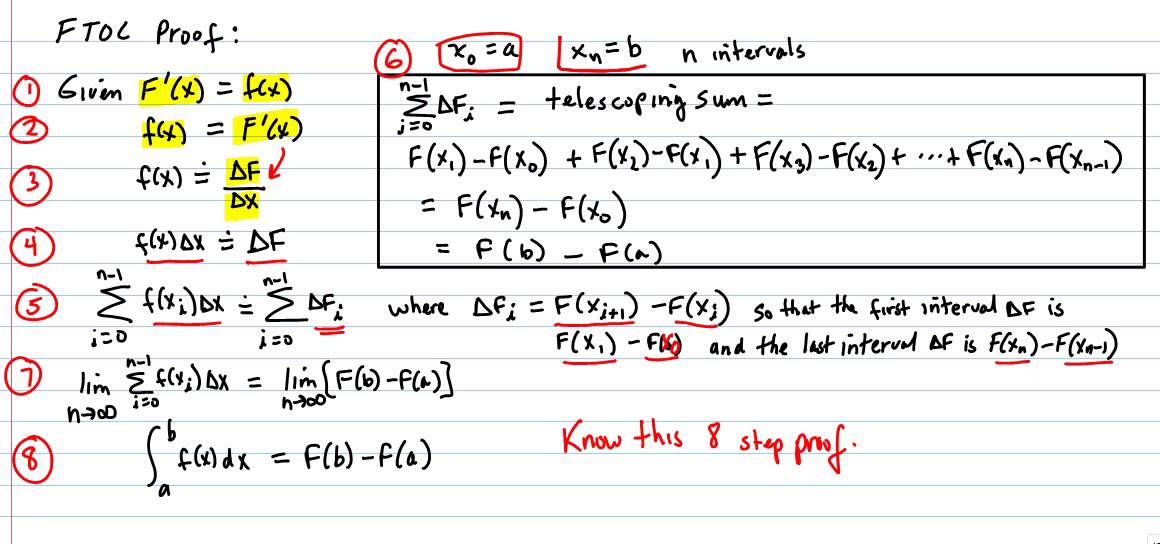 FTOC Proof:
① Given F'(x) = f(x)
② f(x) = F'(x)
③ f(x) ≐ ΔF/Δx
④ f(x)Δx ≐ ΔF
⑤ ∑_{i=0}^{n-1} f(x_i)Δx ≐ ∑_{i=0}^{n-1} ΔF_i where ΔF_i = F(x_{i+1}) - F(x_i) so that the first interval ΔF is
F(x_1) - F(x_0) and the last interval ΔF is F(x_n) - F(x_{n-1})
⑥ x_0 = a x_n = b n intervals
∑_{i=0}^{n-1} ΔF_i = telescoping sum =
F(x_1) - F(x_0) + F(x_2) - F(x_1) + F(x_3) - F(x_2) + ... + F(x_n) - F(x_{n-1})
= F(x_n) - F(x_0)
= F(b) - F(a)
⑦ lim_{n→∞} ∑_{i=0}^{n-1} f(x_i)Δx = lim_{n→∞} [F(b) - F(a)]
⑧ ∫_a^b f(x)dx = F(b) - F(a)
Know this 8 step proof.